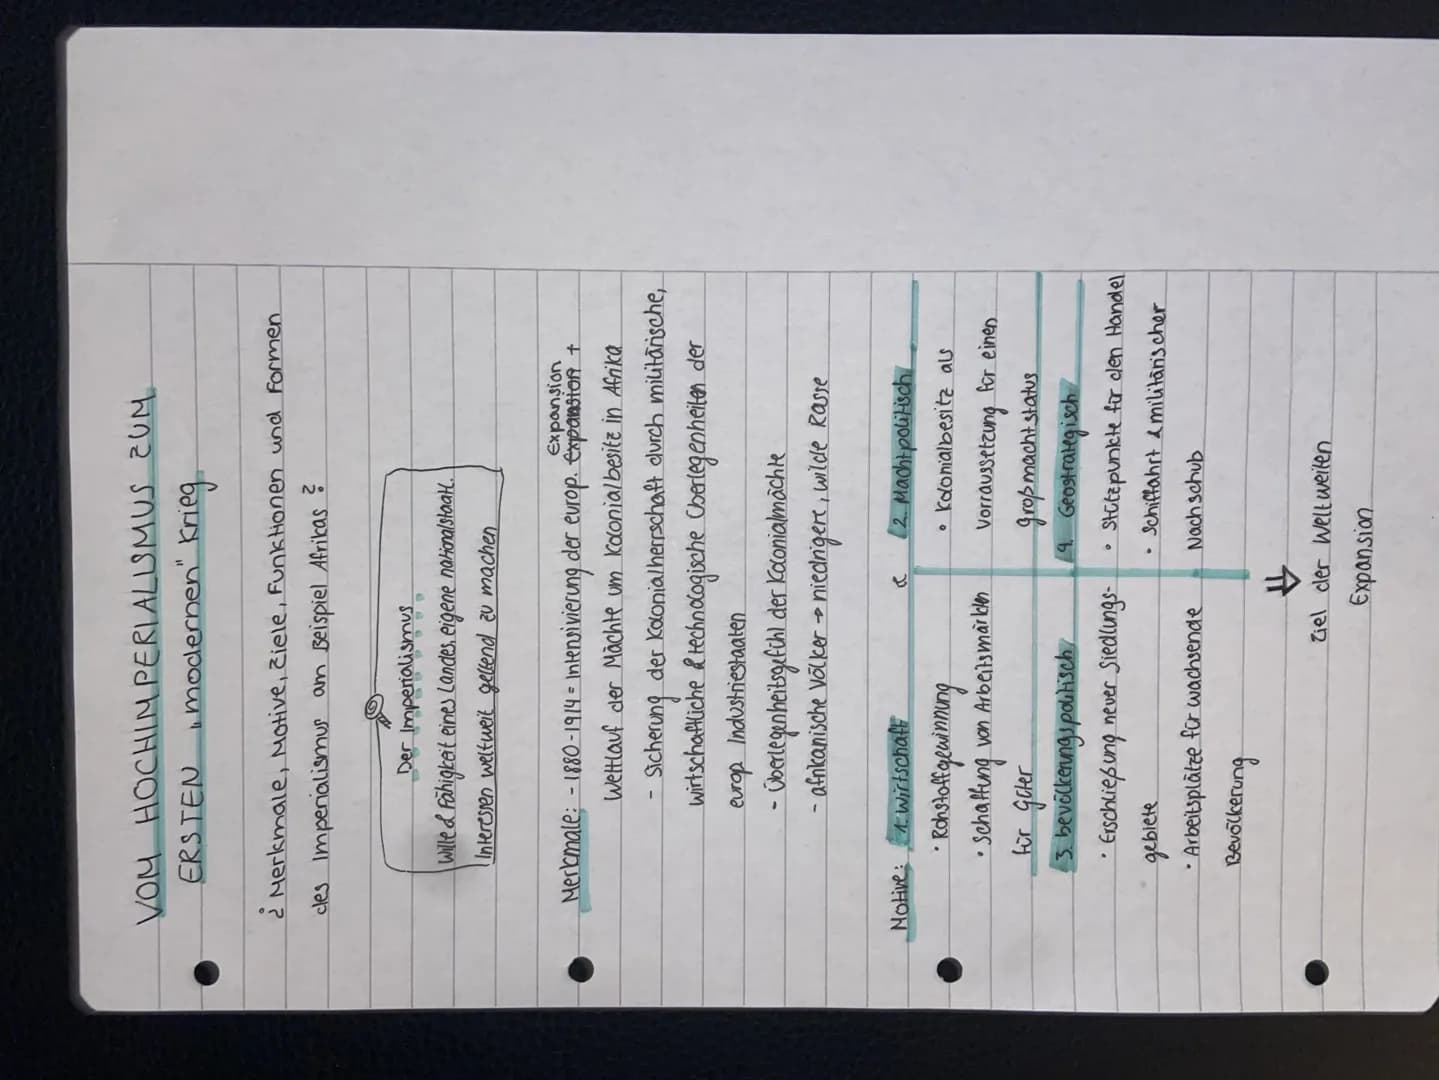 VOM HOCHIMPERIALISMUS ZUM
ERSTEN „modernen" Krieg
¿ Merkmale, Motive, Ziele, Funktionen und Formen
des Imperialismus am Beispiel Afrikas ?
Der Imperialismus
Wille & Fähigkeit eines Landes, eigene nationalstaatl.
Interessen weltweit geltend zu machen
Expansion
Merkmale: - 1880-1914 = Intensivierung der europ. Expansion +
Wettlauf der Mächte um Kolonialbesitz in Afrika
- Sicherung der Kolonialherrschaft durch militärische,
wirtschaftliche & technologische Überlegenheiten der
europ Industriestaaten
- Überlegenheitsgefühl der Kolonialmächte
- afrikanische Völker → niedrigere, wilde Rasse
Motive: 1. wirtschaft
• Rohstoffgewinnung
• Schaffung von Arbeitsmärkten
für Güter
2. Machtpolitisch
• Kolonialbesitz als
Vorraussetzung für einen
großmachtstatus
3. bevölkerungspolitisch
• Erschließung neuer Siedlungs-
gebiete
• Arbeitsplätze für wachsende
Bevölkerung
4. Geostrategisch
• Stützpunkte für den Handel
• Schifffahrt & militärischer
Nachschub
⇓
Ziel der weltweiten
Expansion